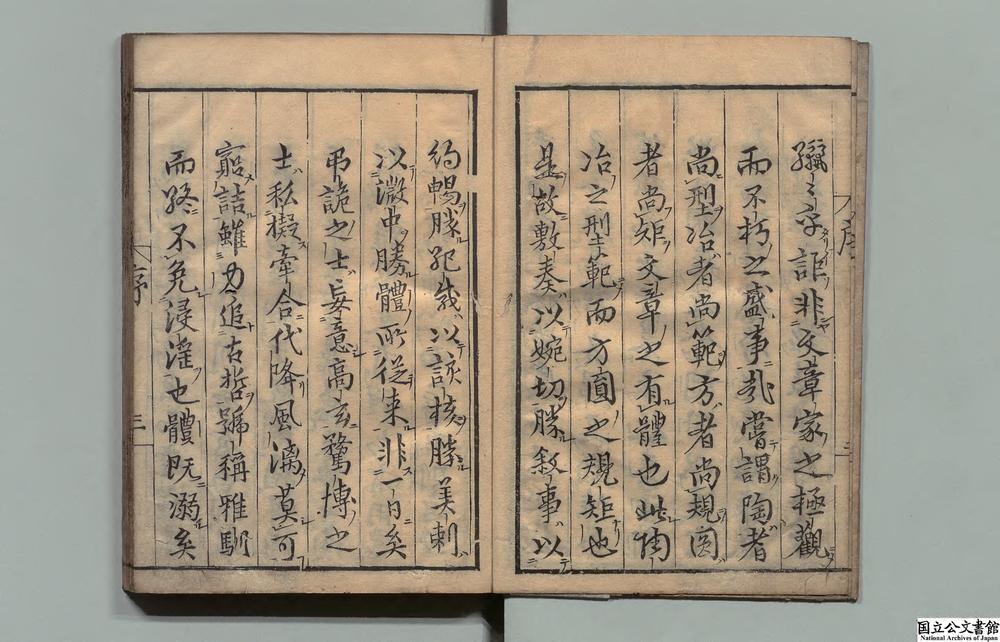 纚々乎詎非文章家之極觀
而不朽之盛事哉嘗謂陶者
尚型冶者尚範方者尚規圓
者尚矩文章之有體也此陶
冶之型範而方圓之規矩也
是故敷奏以婉切勝敘事以
約暢勝犯以該核勝美刺
以微中勝體所從来非一日矣
弔詭之士妄意高玄騖博之
士私擬牽合代降風漓莫可
窮詰雖力追古哲號稱雅馴
而終不免浸淫也體既溺矣
序
三
国立公文書館
National Archives of Japan